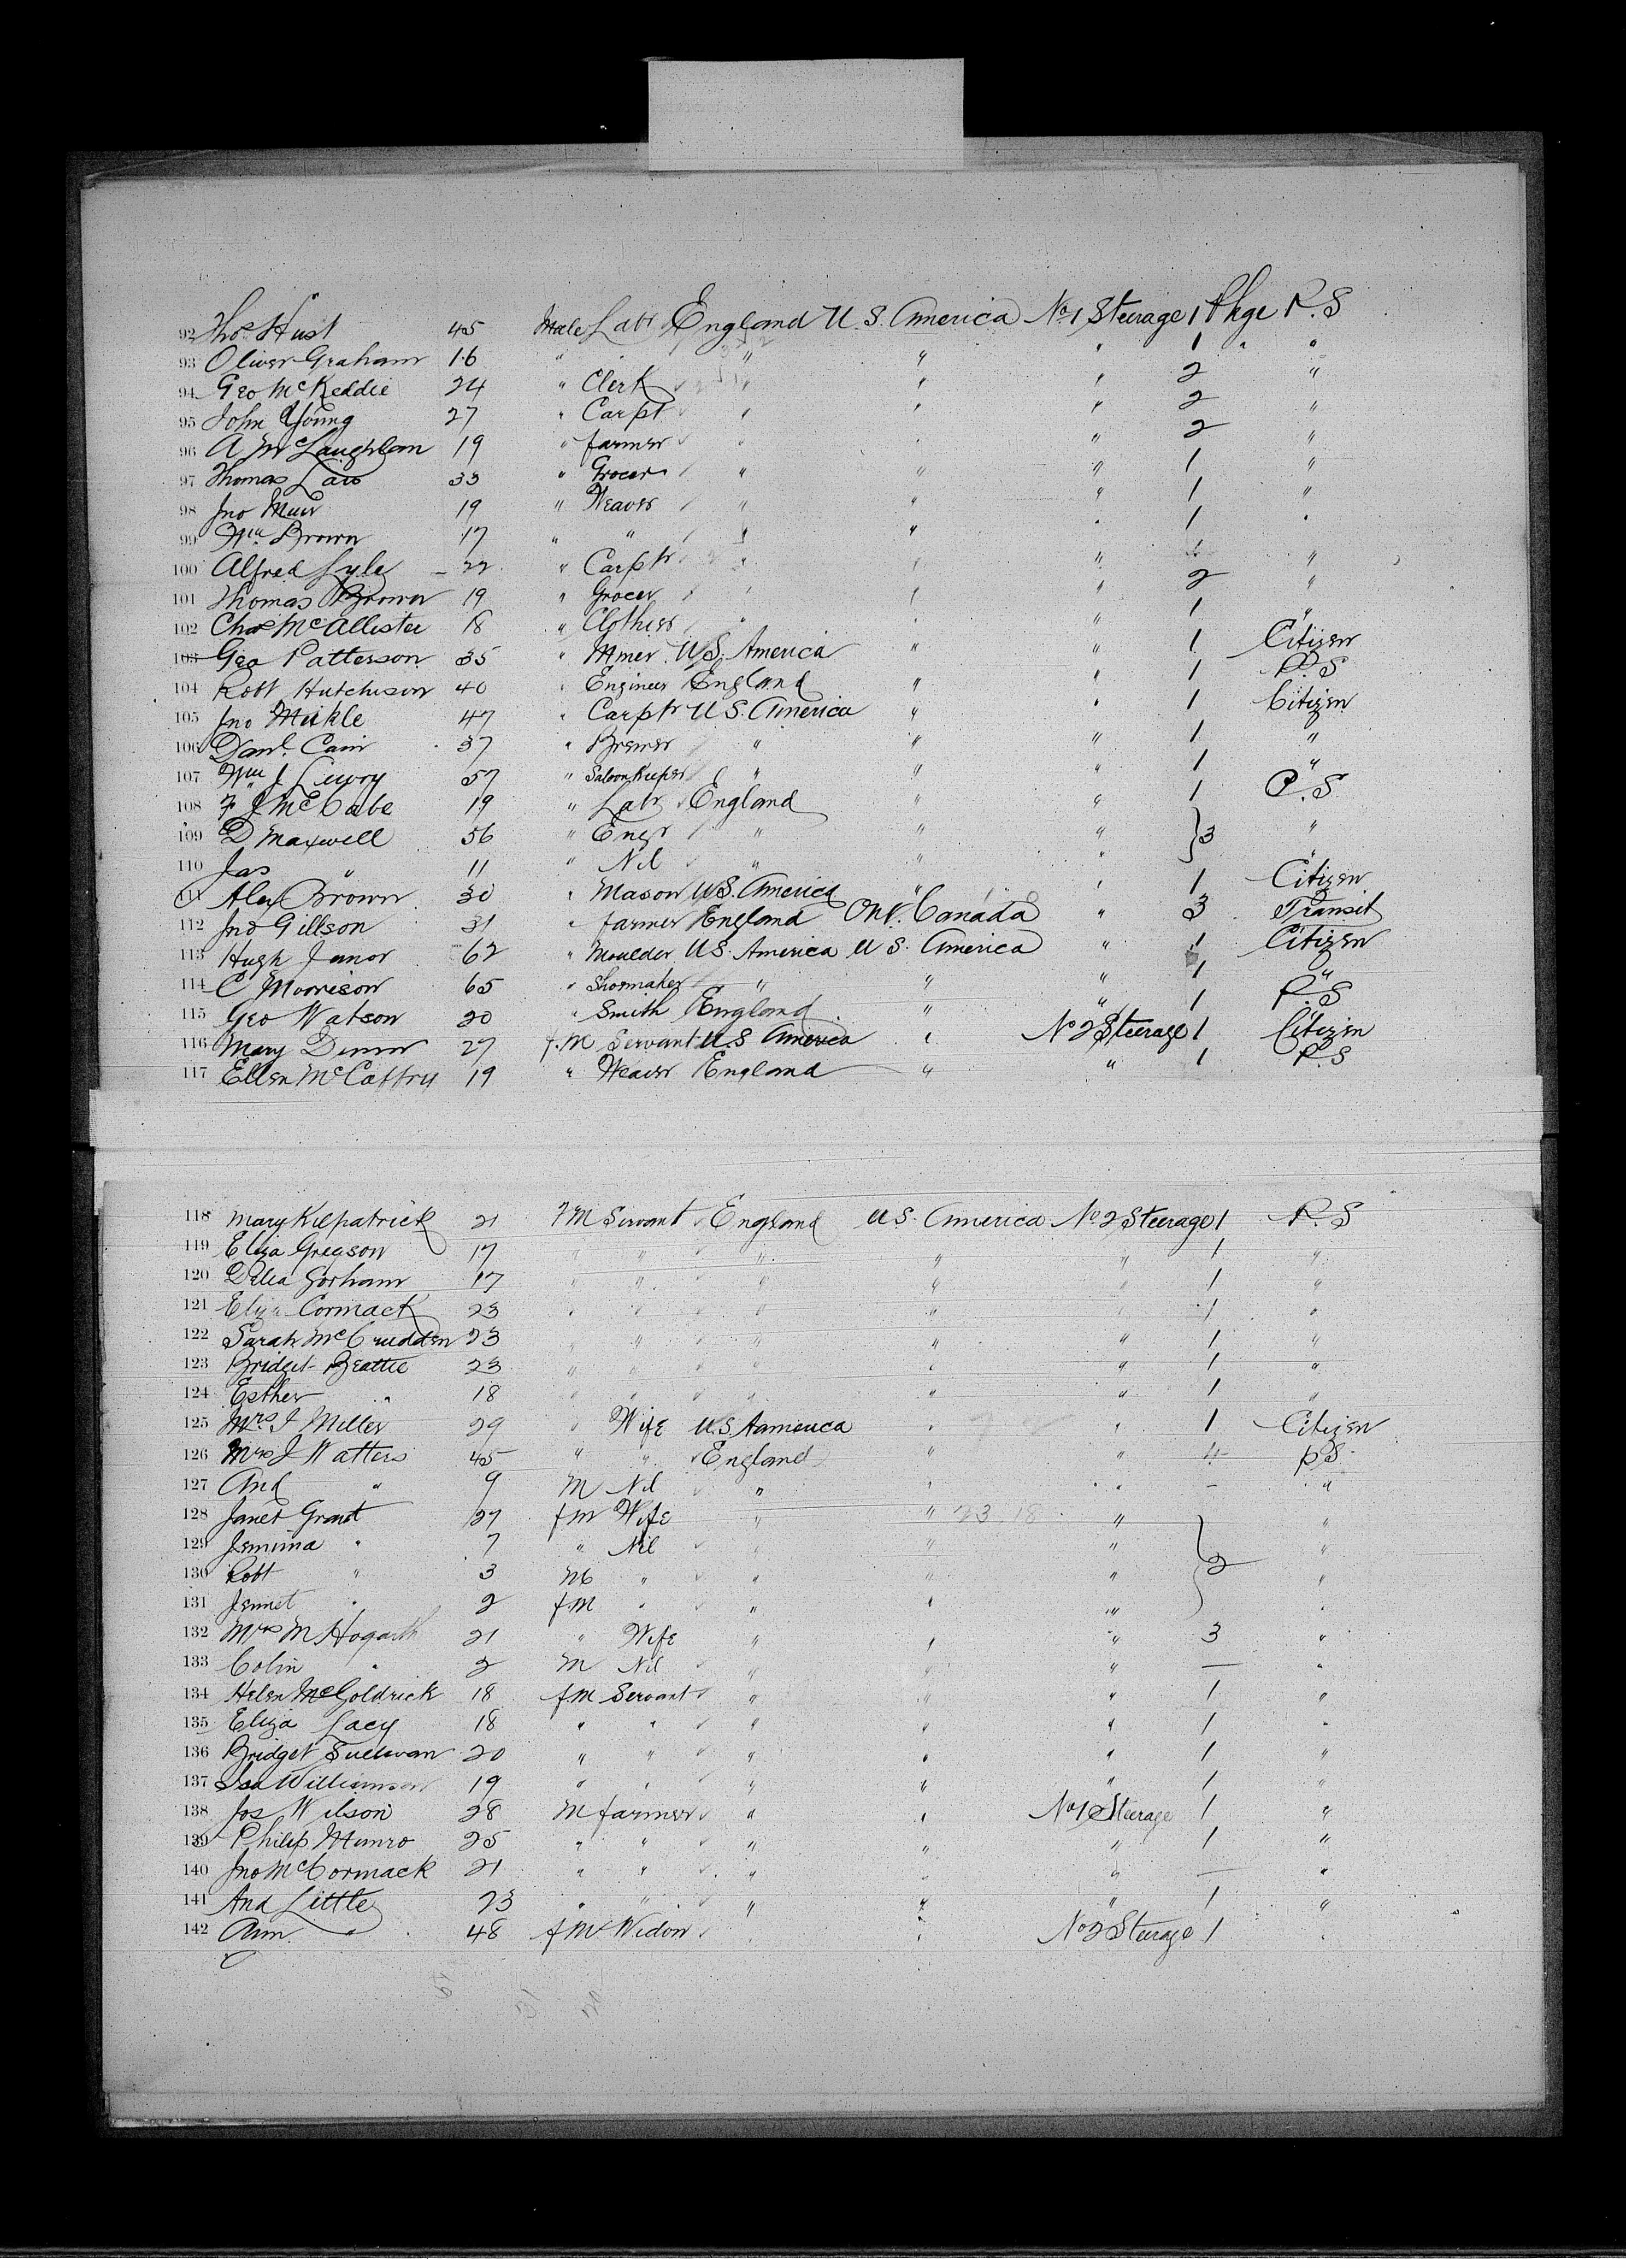 92 Thos Hust 45 Male Labr England U.S. America No 1 Steerage 1 Pkge P.S
93 Oliver Graham 16 " " " " " 1 " "
94 Geo McKeddie 24 " Clerk " " " 2 "
95 John Young 27 " Carptr " " " 2 "
96 A McLaughlan 19 " farmer " " " 2 "
97 Thomas Law 33 " Grocer " " " 1 "
98 Jno Muir 19 " Weaver " " " 1 "
99 Wm Brown 17 " " " " " 1 "
100 Alfred Lyle 22 " Carptr " " " 1 "
101 Thomas Brown 19 " Grocer " " " 2 "
102 Chas McAllister 18 " Clothier " " " 1 "
103 Geo Patterson 35 " Miner U.S. America " " 1 Citizen
104 Robt Hutchison 40 " Engineer England " " 1 P.S
105 Jno Meikle 47 " Carptr U.S. America " " 1 Citizen
106 Danl. Cain 37 " Brewer " " " 1 "
107 Wm J 57 " Saloon Keeper " " " 1 "
108 F J McCabe 19 " Labr England " " 1 P.S
109 D Maxwell 56 " Engr " " " } 3 "
110 Jas " 11 " Nil " " " "
111 Alex Brown 30 " Mason U.S. America " " 1 Citizen
112 Jno Gillson 31 " farmer England Ont. Canada " 3 Transit
113 Hugh Janor 62 " Moulder U.S. America U.S. America " 1 Citizen
114 C Morrison 65 " Shoemaker " " " 1 "
115 Geo Watson 20 " Smith England " " 1 P.S
116 Mary 27 f.m Servant U.S America " No 2 Steerage 1 Citizen
117 Ellen McCaffry 19 " Weaver England " " 1 P.S
118 Mary Kilpatrick 21 f M Servant England U.S. America No 2 Steerage 1 P.S
119 Eliza Gregson 17 " " " " " 1 "
120 Delia Gorham 17 " " " " " 1 "
121 Eliza Cormack 23 " " " " " 1 "
122 Sarah McCrudden 23 " " " " " 1 "
123 Bridget Beattie 23 " " " " " 1 "
124 Esther " 18 " " " " " 1 "
125 Mrs J Miller 29 " Wife U.S. Aamerica " " 1 Citizen
126 Mrs J Watters 45 " " England " " 4 P.S
127 And " 9 M Nil " " " - "
128 Janet Grant 27 fm Wife " " " } 2 "
129 Jemima " 7 " Nil " " " "
130 Robt " 3 M " " " " "
131 Jennet " 2 f.m " " " " "
132 Mrs M Hogarth 21 " Wife " " " 3 "
133 Colin " 2 M Nil " " " - "
134 Helen McGoldrick 18 f.m Servant " " " 1 "
135 Eliza Lacy 18 " " " " " 1 "
136 Bridget Sullivan 20 " " " " " 1 "
137 Isa Williamson 19 " " " " " 1 "
138 Jos Wilson 28 M farmer " " No 1 Steerage 1 "
139 Philip Munro 25 " " " " " 1 "
140 Jno McCormack 21 " " " " " - "
141 And Little 23 " " " " " 1 "
142 Ann " 48 f M Widow " " No 2 Steerage 1 "